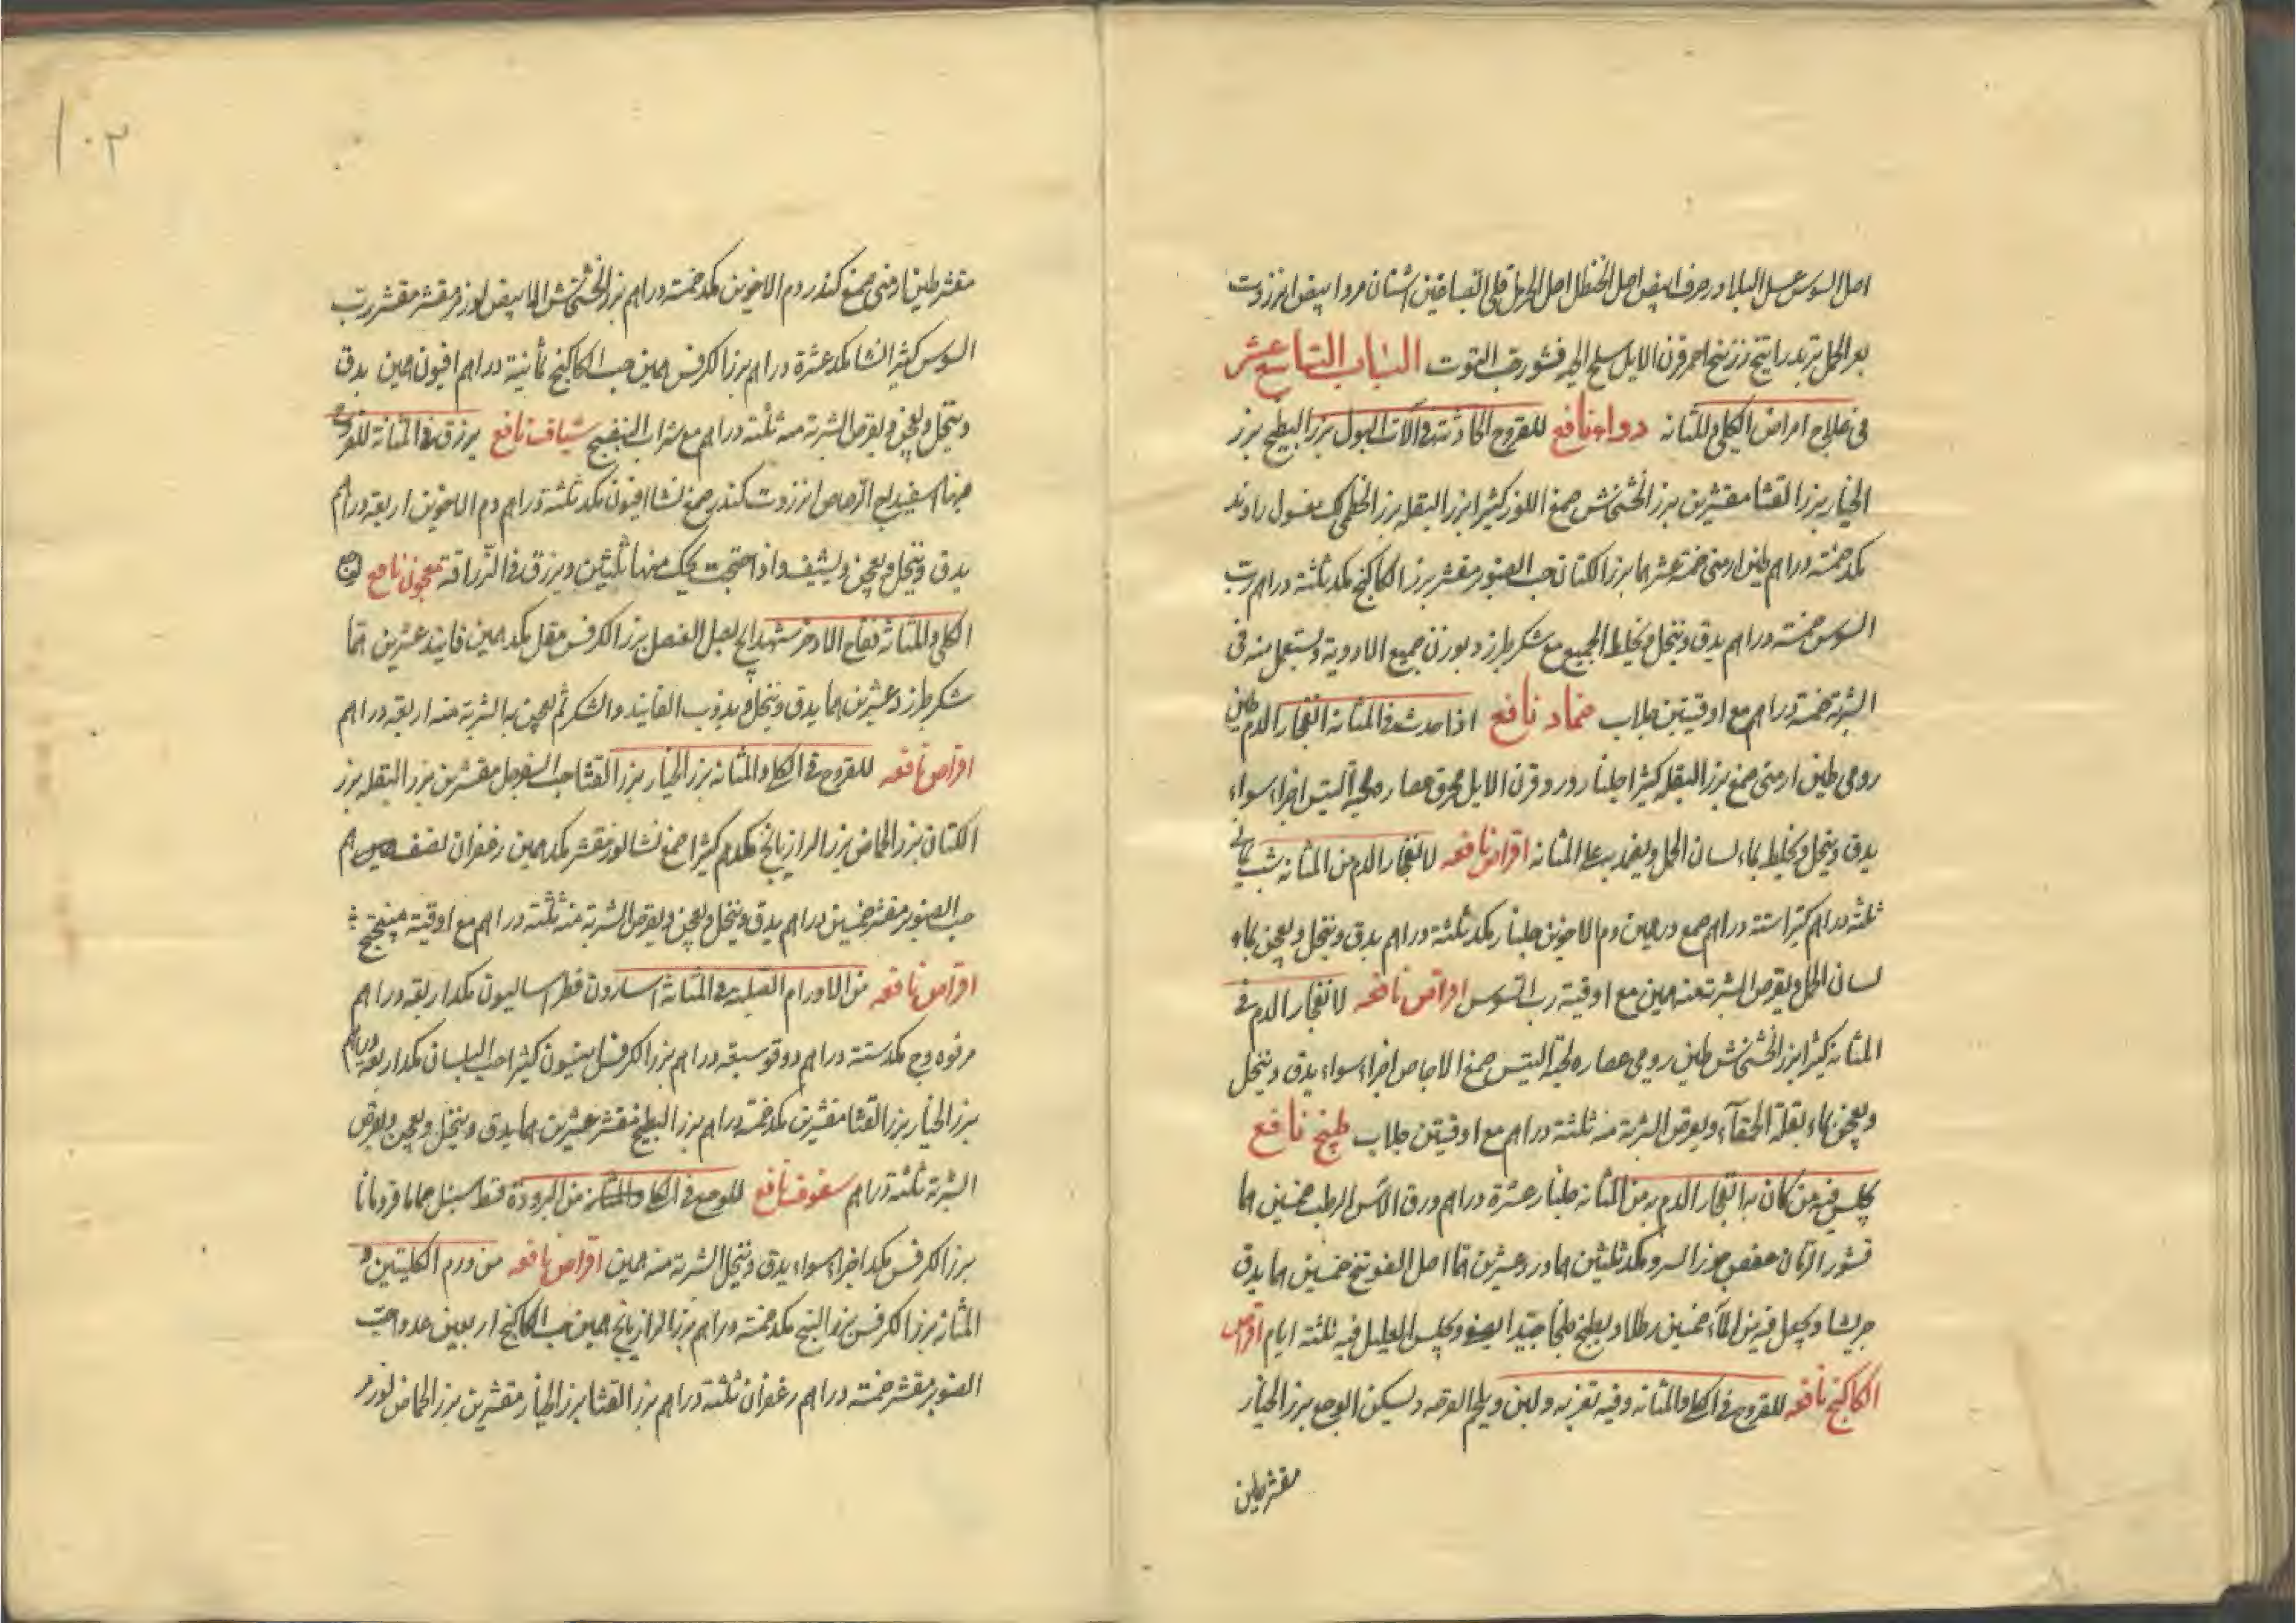 اصل السوس عسل البلادر حرف ابيض اصل الحنظل اصل الحرمل قلى الصباغين اشنان مرداء بيض انزروت
بعر الحمل تربد راتينج زرنيخ احمر قرن الايل سلخ الحية قشور حب التوت الباب التاسع عشر
فى علاج امراض الكلى والمثانه دواء نافع للقروح الحادثة فى آلات البول بزر البطيخ بزر
الخيار بزر القثا مقشرين بزر الخشخاش صمغ اللوز كثيرا بزر البقله بزر الخطمى لك مغسول راوند
مكد خمسة دراهم طين ارمنى خمسة عشر هما بزر الكتان حب الصنوبر مقشر بزر الكاكنج مكد ثلثة دراهم رب
السوس خمسة دراهم يدق وينخل ويخلط الجميع مع شكر طبرزد بوزن جميع الادوية ويستعمل منه فى
الشربة خمسة دراهم مع اوقيتين جلاب ضماد نافع اذا حدث فى المثانه انفجار الدم طين
رومى طين ارمنى صمغ بزر البقله كثيرا جلنار ورد قرن الايل محرق عصاره لحية التيس اجزاء سواء
يدق وينخل ويخلط بماء لسان الحمل ويضمد به على المثانه اقراص نافعه لانفجار الدم من المثانه شب يمانى
ثلثة دراهم كثيرا ستة دراهم صمغ درهمين دم الاخوين جلنار مكد ثلثة دراهم يدق وينخل ويعجن بماء
لسان الحمل ويقرص الشربة منه همين مع اوقية رب السوس اقراص نافعه لانفجار الدم فى
المثانه كثيرا بزر الخشخاش طين رومى عصاره لحية التيس صمغ الاجاص اجزاء سواء يدق وينخل
ويعجن بماء بقلة الحمقآء ويقرص الشربة منه ثلثة دراهم مع اوقيتين جلاب طبيخ نافع
يجلس فيه من كان به انفجار الدم به من المثانه جلنار عشرة دراهم ورق الآس الرطب خمسين هما
قشور الرمان عفص جوز السرو مكد ثلثين هما ورد عشرين هما اصل الفوتنج خمسين هما يدق
جريشا ويجعل فيه من المآء خمسين رطلا ويطبخ طبخا جيدا ويصفى ويجلس العليل فيه ثلثة ايام اقراص
الكاكنج نافعه للقروح فى الكلى والمثانه وفيه تغريه ولين ويلحم القرحه ويسكن الوجع بزر الخيار
مقشر طين
١٠٣
مقشر طين ارمنى صمغ كندر دم الاخوين مكد خمسة دراهم بزر الخشخاش الابيض لوز مر مقشر مقشر رب
السوس كثيرا نشا مكد عشرة دراهم بزر الكرفس همين حب الكاكنج ثمانية دراهم افيون همين يدق
وينخل ويعجن ويقرص الشربة منه ثلثة دراهم مع شراب البنفسج شياف نافع يزرق فى المثانه للقروح
فيها اسفيداج الرصاص انزروت كندر صمغ نشا افيون مكد ثلثة دراهم دم الاخوين اربعة دراهم
يدق وينخل ويعجن ويشيف واذا احتجت يحك منها ثلثين ويزرق فى الزراقة معجون نافع لوجع
الكلى والمثانه فقاح الاذخر شهدانج بصل العنصل بزر الكرفس مقل مكد همين فانيد عشرين هما
شكر طبرزد عشرين هما يدق وينخل ويذوب الفانيد والشكر ثم يعجن به الشربة منه اربعة دراهم
اقراص نافعه للقروح فى الكلى والمثانه بزر الخيار بزر القثا حب السفرجل مقشرين بزر البقله بزر
الكتان بزر الحماض بزر الرازيانج مكدم كثيرا صمغ نشا لوز مقشر مكد همين زعفران نصف هم
حب الصنوبر مقشر خمسين دراهم يدق وينخل ويعجن ويقرص الشربة منه ثلثة دراهم مع اوقية ميبختج
اقراص نافعه من الاورام الصلبة فى المثانة اسارون فطراساليون مكد اربعة دراهم
مرفوه وج مكد ستة دراهم دوقو سبعة دراهم بزر الكرفس انيسون كثيرا حب البلسان مكد اربعة دراهم
بزر الخيار بزر القثا مقشرين مكد خمسة دراهم بزر البطيخ مقشر عشرين هما يدق وينخل ويعجن ويقرص
الشربة ثلثة دراهم سفوف نافع للوجع فى الكلى والمثانه من البرودة قسط سنبل حماما قردمانا
بزر الكرفس مكد اجزاء سواء يدق وينخل الشربة منه همين اقراص نافعه من ورم الكليتين و
المثانه بزر الكرفس بزر البنج مكد خمسة دراهم بزر الرازيانج همين حب الكاكنج اربعين عدد حب
الصنوبر مقشر خمسة دراهم زعفران ثلثة دراهم بزر القثا بزر الخيار مقشرين بزر الحماض لوز مر